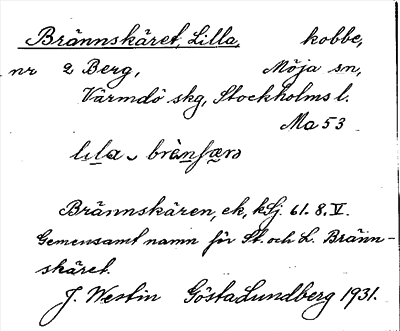 Brännskäret, Lilla, kobbe,
nr 2 Berg, Möja sn,
Värmdö skg, Stockholms l.
Ma 53
lıla
Brännskären, ek, kSj. 61. 8. V.
Gemensamt namn för St. och L. Bränn-
skäret.
J. Westin Gösta Lundberg 1931.